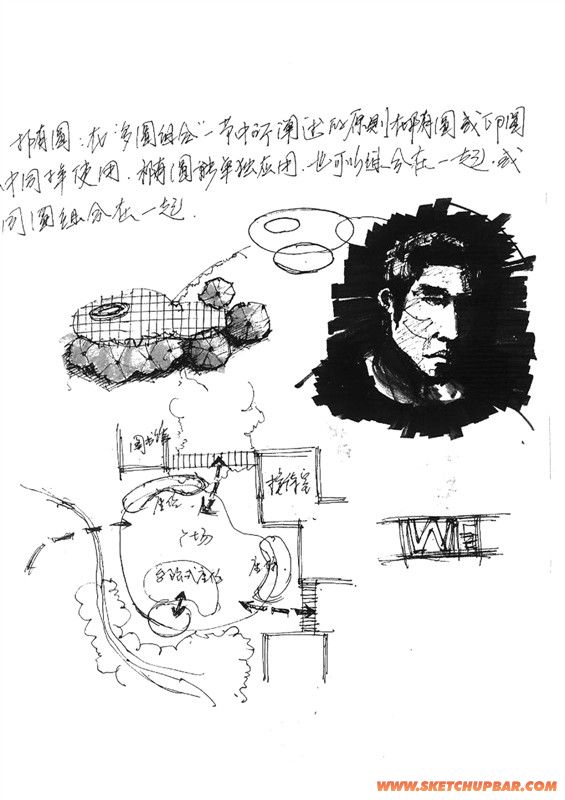 椭圆：在“多圆组合”一节中所阐述的原则在椭圆或卵圆
中同样使用.椭圆能单独应用.也可以组合在一起.或
同圆组合在一起.
图书馆
接待室
座位
广场
座位
台阶式座位
WE
WWW.SKETCHUPBAR.COM